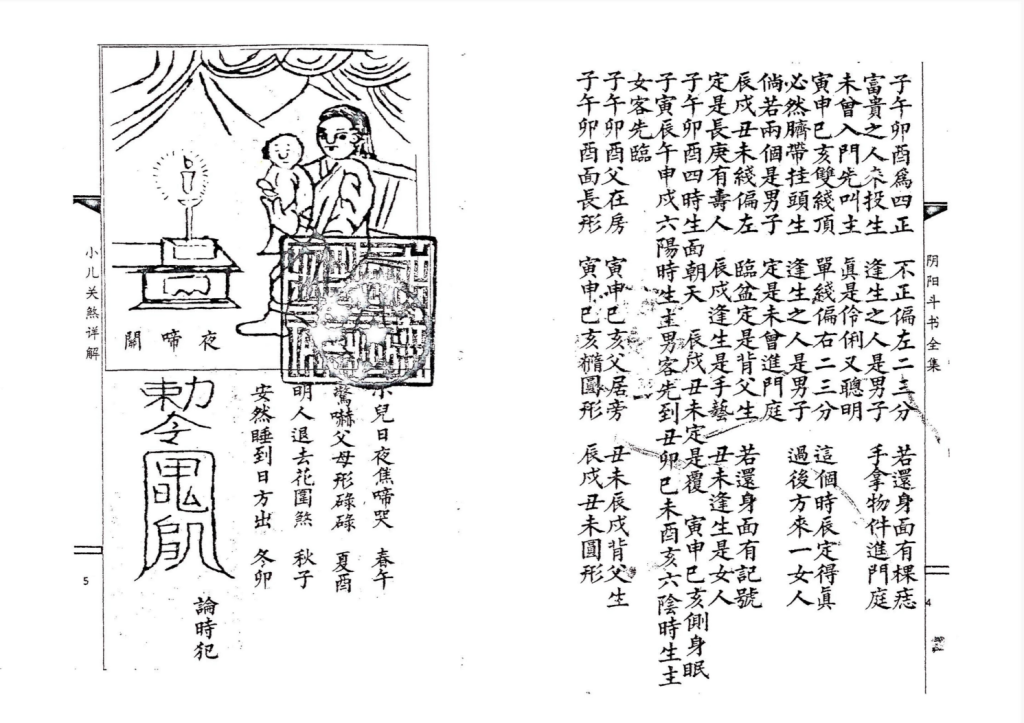 阴阳斗书全集
4
子午卯酉爲四正 不正偏左二三分 若還身面有棵痣
富貴之人來投生 逢生之人是男子 手拿物件進門庭
未曾入門先叫主 眞是伶俐又聰明
寅申巳亥雙綫頂 單綫偏右二三分 這個時辰定得眞
必然臍帶挂頭生 逢生之人是男子 過後方來一女人
倘若兩個是男子 定是未曾進門庭
辰戌丑未綫偏左 臨盆定是背父生 若還身面有記號
定是長庚有壽人 辰戌逢生是手藝 丑未逢生是女人
子午卯酉四時生面朝天 辰戌丑未定是覆 寅申巳亥側身眠
子寅辰午申戌六陽時生主男客先到丑卯巳未酉亥六陰時生主
女客先臨
子午卯酉父在房 寅申巳亥父居旁 丑未辰戌背父生
子午卯酉面長形 寅申巳亥橢圓形 辰戌丑未圓形
夜啼關
小兒日夜焦啼哭 春午
驚嚇父母形碌碌 夏酉
明人退去花園煞 秋子
安然睡到日方出 冬卯
論時犯
敕令
小儿关煞详解
5